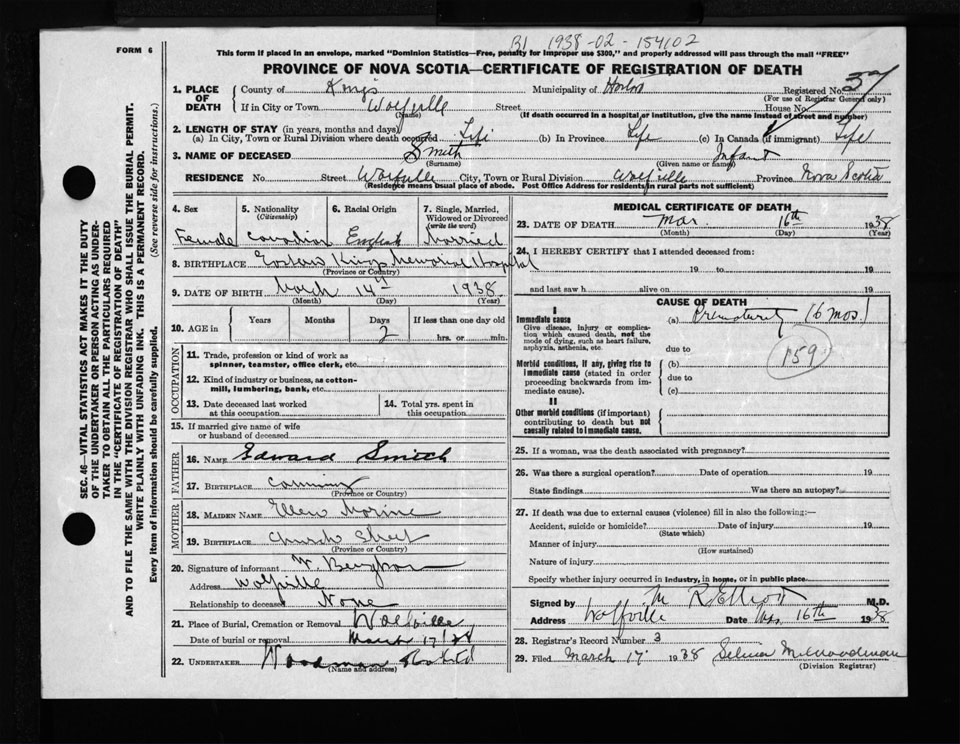 FORM 6
B1 1938-02-154102
This form if placed in an envelope, marked "Dominion Statistics—Free, penalty for improper use $300," and properly addressed will pass through the mail "FREE"
PROVINCE OF NOVA SCOTIA—CERTIFICATE OF REGISTRATION OF DEATH
37
1. PLACE OF DEATH County of Kings Municipality of Horton Registered No.
(For use of Registrar General only)
If in City or Town Wolfville Street House No.
(Name) (If death occurred in a hospital or institution, give the name instead of street and number)
2. LENGTH OF STAY (in years, months and days)
(a) In City, Town or Rural Division where death occurred Life (b) In Province Life (c) In Canada (if immigrant) Life
3. NAME OF DECEASED Smith Infant
(Surname) (Given name or names)
RESIDENCE No. Street Wolfville City, Town or Rural Division Wolfville Province Nova Scotia
(Residence means usual place of abode. Post Office Address for residents in rural parts not sufficient)
4. Sex 5. Nationality (Citizenship) 6. Racial Origin 7. Single, Married, Widowed or Divorced (write the word)
Female Canadian English Married
8. BIRTHPLACE Eastern Kings Memorial Hospital
(Province or Country)
9. DATE OF BIRTH March 14th 1938
(Month) (Day) (Year)
10. AGE in Years Months Days If less than one day old
2 hrs. or min.
OCCUPATION
11. Trade, profession or kind of work as spinner, teamster, office clerk, etc.
12. Kind of industry or business, as cotton-mill, lumbering, bank, etc.
13. Date deceased last worked at this occupation
14. Total yrs. spent in this occupation
15. If married give name of wife or husband of deceased
FATHER
16. NAME Edward Smith
17. BIRTHPLACE Canning
(Province or Country)
MOTHER
18. MAIDEN NAME Ellen Morine
19. BIRTHPLACE Church Street
(Province or Country)
20. Signature of informant
Address Wolfville
Relationship to deceased None
21. Place of Burial, Cremation or Removal Wolfville
Date of burial or removal March 17/38
22. UNDERTAKER Woodman
(Name and address)
MEDICAL CERTIFICATE OF DEATH
23. DATE OF DEATH Mar 16th 1938
(Month) (Day) (Year)
24. I HEREBY CERTIFY that I attended deceased from
19 to 19
and last saw h alive on 19
CAUSE OF DEATH
I
Immediate cause (a) Prematurity (6 mos.)
Give disease, injury or complication which caused death, not the mode of dying, such as heart failure, asphyxia, asthenia, etc.
159
due to
Morbid conditions, if any, giving rise to immediate cause (stated in order proceeding backwards from immediate cause).
(b)
due to
(c)
II
Other morbid conditions (if important) contributing to death but not causally related to immediate cause.
25. If a woman, was the death associated with pregnancy?
26. Was there a surgical operation? Date of operation 19
State findings Was there an autopsy?
27. If death was due to external causes (violence) fill in also the following:—
Accident, suicide or homicide? Date of injury 19
(State which)
Manner of injury
(How sustained)
Nature of injury
Specify whether injury occurred in industry, in home, or in public place.
Signed by M R Elliott M.D.
Address Wolfville Date Mar 16th 1938
28. Registrar's Record Number 3
29. Filed March 17 1938 Selina M. Woodman
(Division Registrar)
SEC. 46—VITAL STATISTICS ACT MAKES IT THE DUTY
OF THE UNDERTAKER OR PERSON ACTING AS UNDER-
TAKER TO OBTAIN ALL THE PARTICULARS REQUIRED
IN THE "CERTIFICATE OF REGISTRATION OF DEATH"
AND TO FILE THE SAME WITH THE DIVISION REGISTRAR WHO SHALL ISSUE THE BURIAL PERMIT.
WRITE PLAINLY WITH UNFADING INK. THIS IS A PERMANENT RECORD.
Every item of information should be carefully supplied. (See reverse side for instructions.)